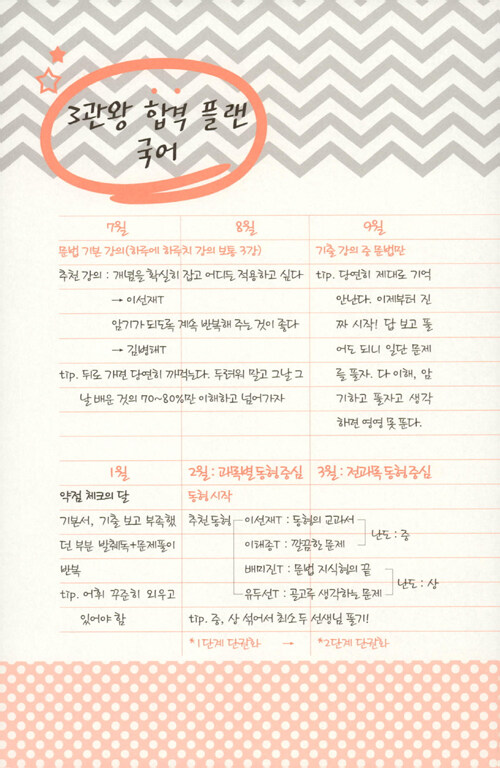 3관왕 합격 플랜
국어
7월 8월 9월
문법 기본 강의(하루에 하루치 강의 보통 3강) 기출 강의 중 문법만
추천 강의 : 개념을 확실히 잡고 어디든 적용하고 싶다
→ 이선재T
암기가 되도록 계속 반복해 주는 것이 좋다
→ 김병태T
tip. 뒤로 가면 당연히 까먹는다. 두려워 말고 그날 그
날 배운 것의 70~80%만 이해하고 넘어가자
tip. 당연히 제대로 기억
안난다. 이제부터 진
짜 시작! 답 보고 풀
어도 되니 일단 문제
를 풀자. 다 이해, 암
기하고 풀자고 생각
하면 영영 못 푼다.
1월 2월 : 과목별 동형 중심 3월 : 전과목 동형 중심
약점 체크의 달
기본서, 기출 보고 부족했
던 부분 발췌독+문제풀이
반복
tip. 어휘 꾸준히 외우고
있어야 함
동형 시작
추천 동형
이선재T : 동형의 교과서
이태종T : 깔끔한 문제
난도 : 중
배미진T : 문법 지식형의 끝
유두선T : 골고루 생각하는 문제
난도 : 상
tip. 중, 상 섞어서 최소 두 선생님 풀기!
*1단계 단권화 → *2단계 단권화